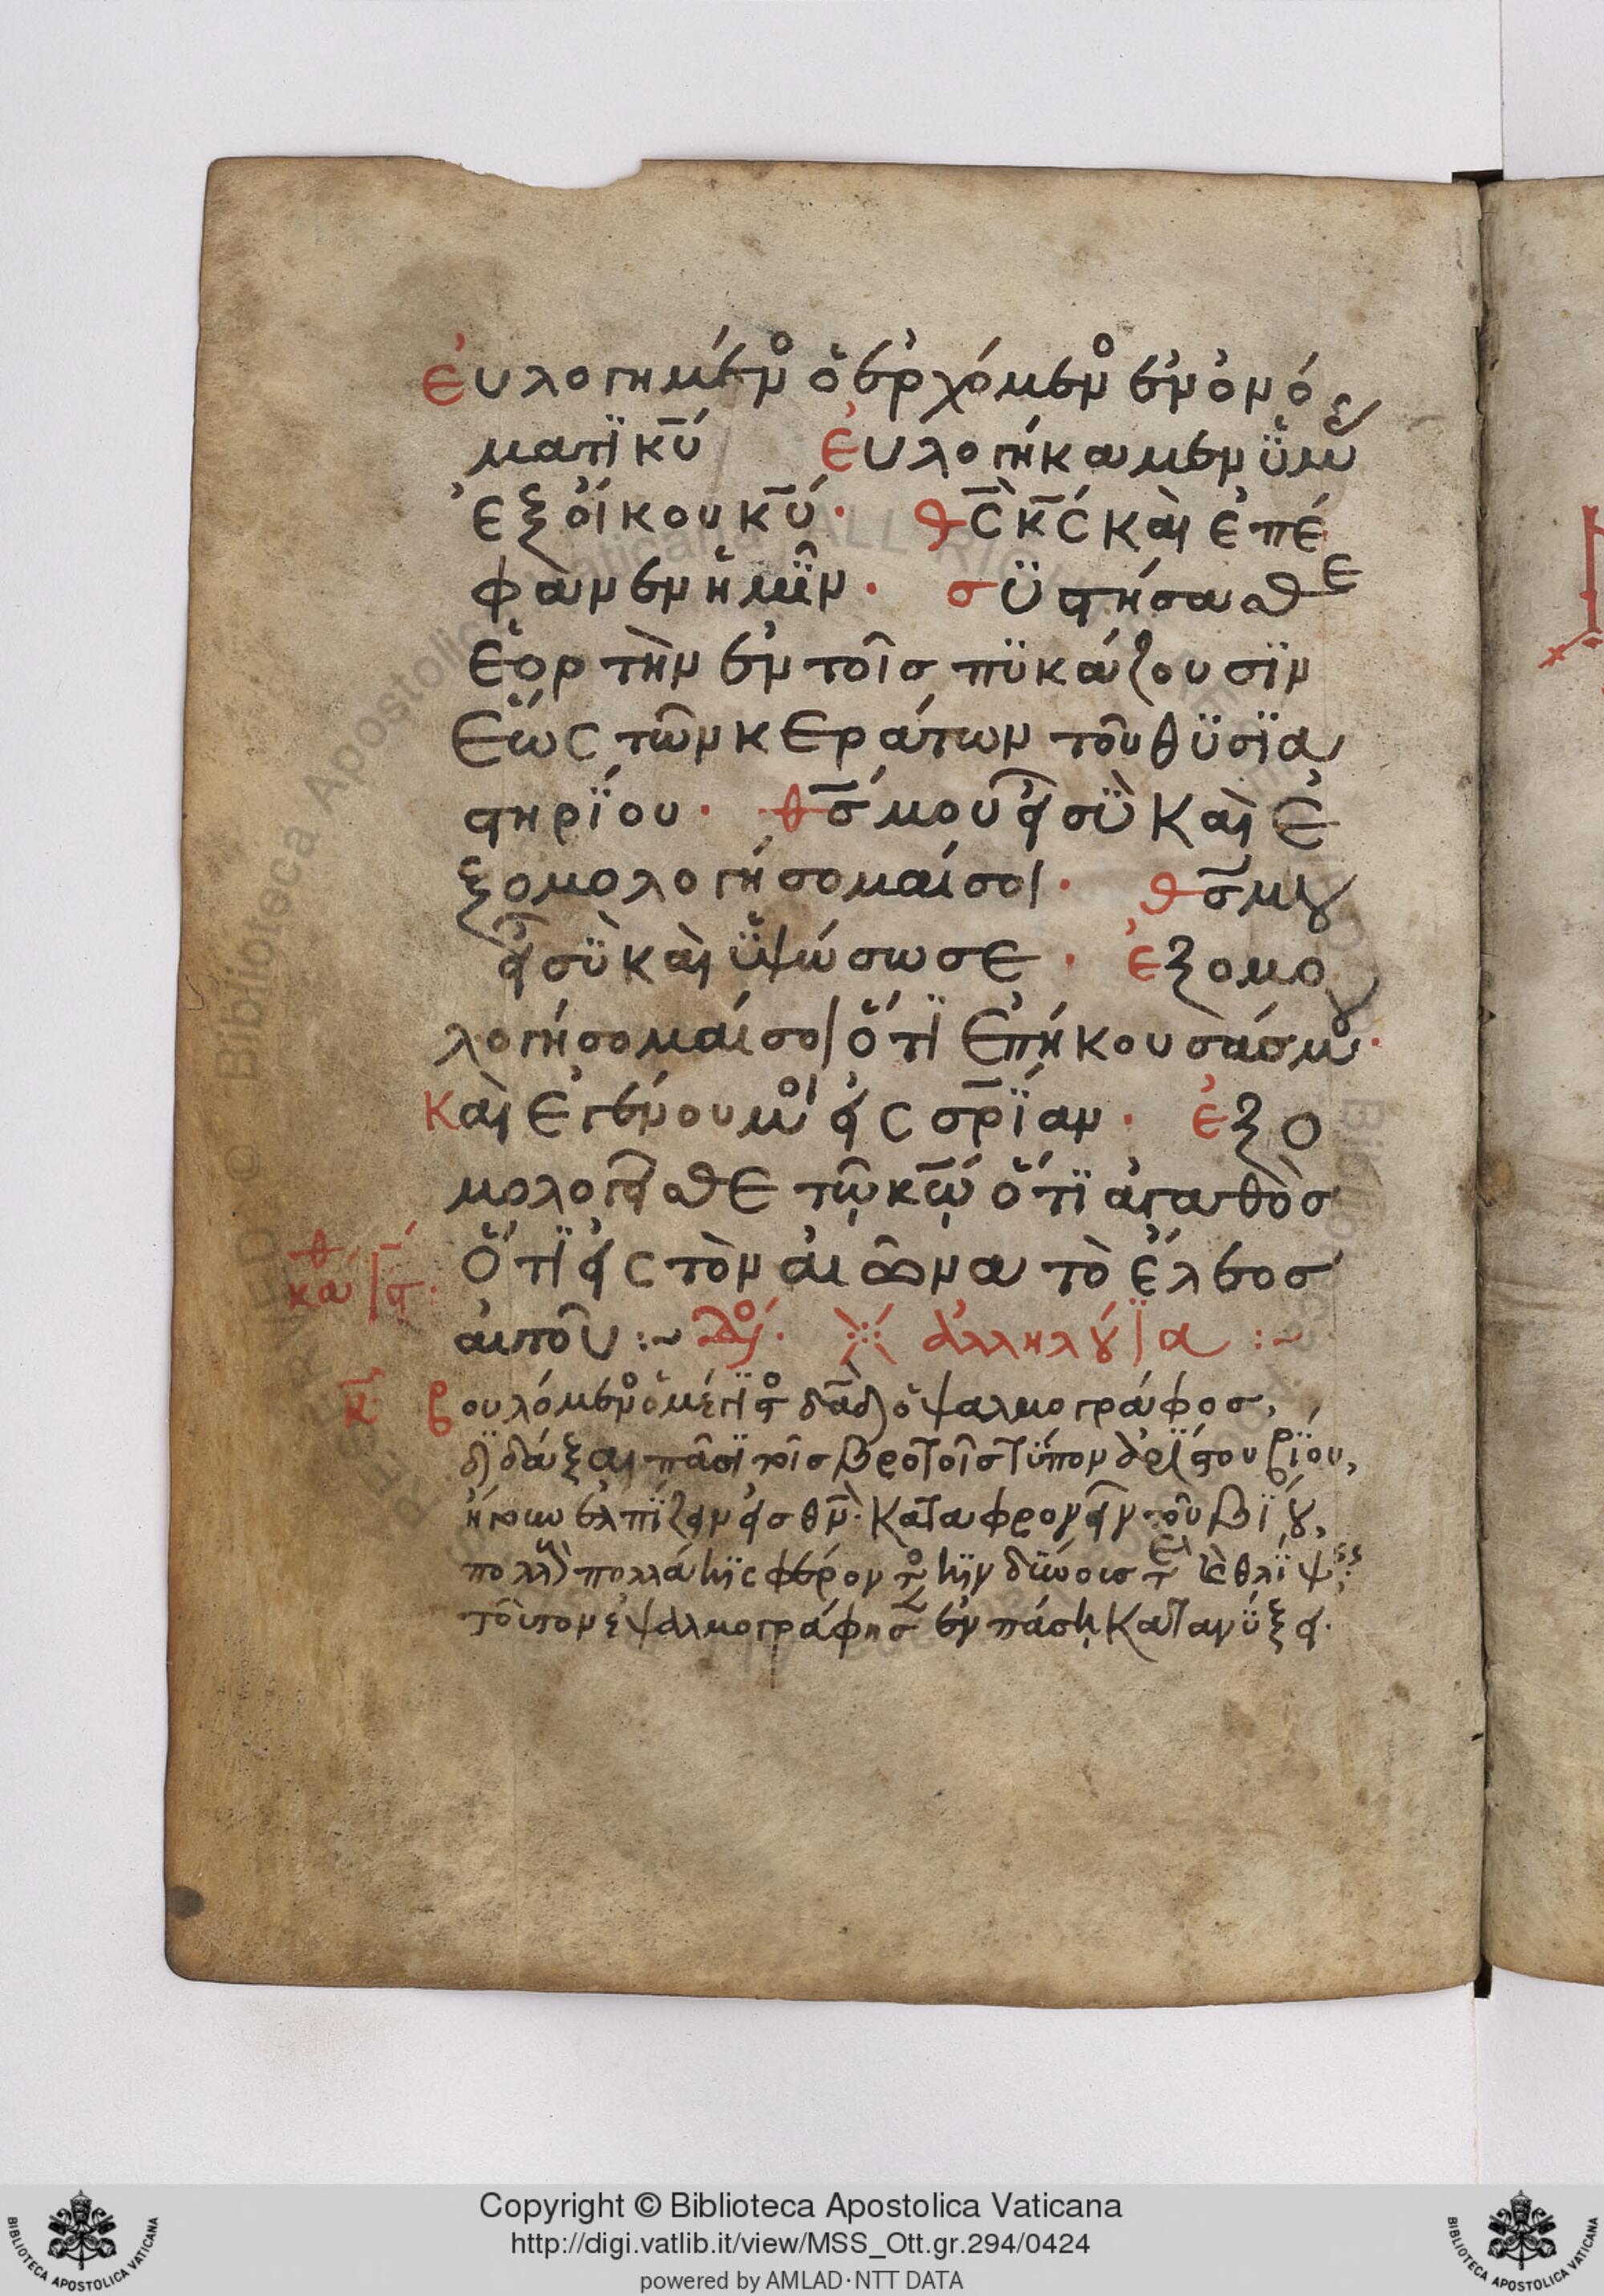 εὐλογημένο ὁ ἐρχόμενο ἐν ὀνό
ματϊ κ̅υ̅ εὐλογήκαμεν ὑμ
ἐξ οἴκου κ̅υ̅· θ̅ς̅ κ̅ς̅ καὶ ἐπέ
φανεν ἡμῖν· συστήσασθε
ἑορτὴν ἐν τοῖσ πϋκάζουσϊν
ἕως τῶν κεράτων τοῦ θϋσϊα
στηρΐου· θ̅σ̅ μου εἶ σϋ καὶ ἐ
ξομολογήσομαί σοι· θ̅σ̅ μου
εἶ σϋ καὶ ὑψώσω σε· ἐξομο
λογήσομαί σοι ὅτϊ ἐπήκουσάσ μου·
καὶ ἐγένου μοι εἰς σ̅ρ̅ΐαν· ἐξο
μολογεῖσθε τῶ κ̅ω̅ ὅτϊ ἀγαθὸσ
ὅτϊ εἰς τὸν αἰῶνα τὸ ἔλεοσ
αὐτοῦ :~ ἀλληλούϊα :~
βουλόμενο ὁ μέγϊστο δ̅α̅δ̅ ὁ ψαλμογράφοσ,
διδάξαι πᾶσϊ τοῖσ βροτοῖσ τύπον ἀρΐστου βΐου,
ἐλπΐζειν εἰσ θ̅ν̅· καταφρονεῖν τοῦ βΐου,
ψαλμογράφησ ἐν πάση κατανύξει·
Copyright © Biblioteca Apostolica Vaticana
http://digi.vatlib.it/view/MSS_Ott.gr.294/0424
powered by AMLAD·NTT DATA
BIBLIOTECA APOSTOLICA VATICANA
BIBLIOTECA APOSTOLICA VATICANA